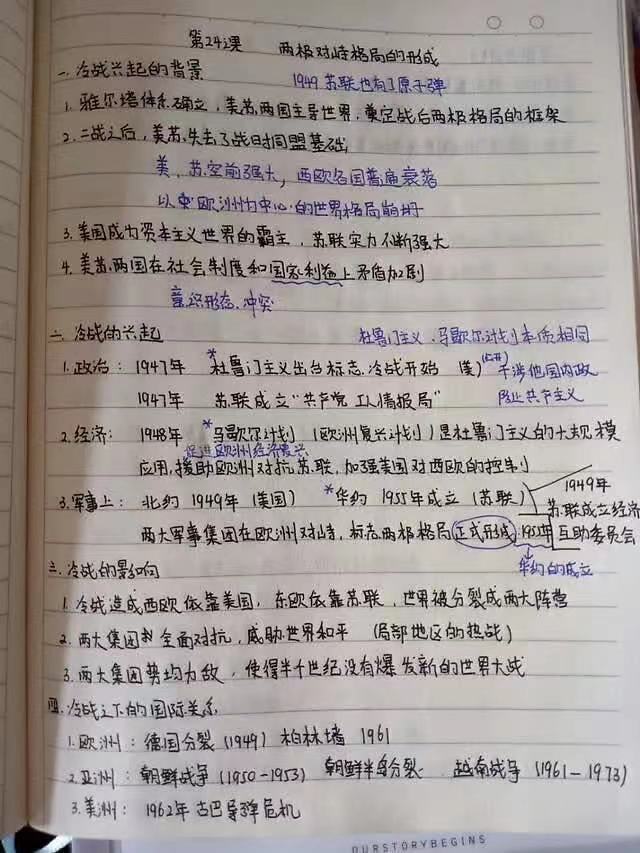 第24课 两极对峙格局的形成
一、冷战兴起的背景
1949 苏联也有了原子弹
1. 雅尔塔体系确立，美苏两国主导世界，奠定战后两极格局的框架
2. 二战之后，美苏失去了战时同盟基础
美、苏空前强大，西欧各国普遍衰落
以欧洲为中心的世界格局崩坍
3. 美国成为资本主义世界的霸主，苏联实力不断强大
4. 美苏两国在社会制度和国家利益上矛盾加剧
意识形态冲突
二、冷战的兴起
杜鲁门主义、马歇尔计划本质相同
1. 政治：1947年 *杜鲁门主义出台标志冷战开始（美） 干涉他国内政
1947年 苏联成立“共产党工人情报局” 阻止共产主义
2. 经济：1948年 *马歇尔计划（欧洲复兴计划）是杜鲁门主义的大规模
促进欧洲经济复兴
应用，援助欧洲对抗苏联，加强美国对西欧的控制
3. 军事上：北约 1949年（美国） *华约 1955年成立（苏联）
1949年
苏联成立经济
两大军事集团在欧洲对峙，标志两极格局正式形成 1955年 互助委员会
华约的成立
三、冷战的影响
1. 冷战造成西欧依靠美国，东欧依靠苏联，世界被分裂成两大阵营
2. 两大集团全面对抗，威胁世界和平（局部地区的热战）
3. 两大集团势均力敌，使得半个世纪没有爆发新的世界大战
四、冷战之下的国际关系
1. 欧洲：德国分裂（1949） 柏林墙 1961
2. 亚洲：朝鲜战争（1950-1953） 朝鲜半岛分裂 越南战争（1961-1973）
3. 美洲：1962年古巴导弹危机
OURSTORYBEGINS